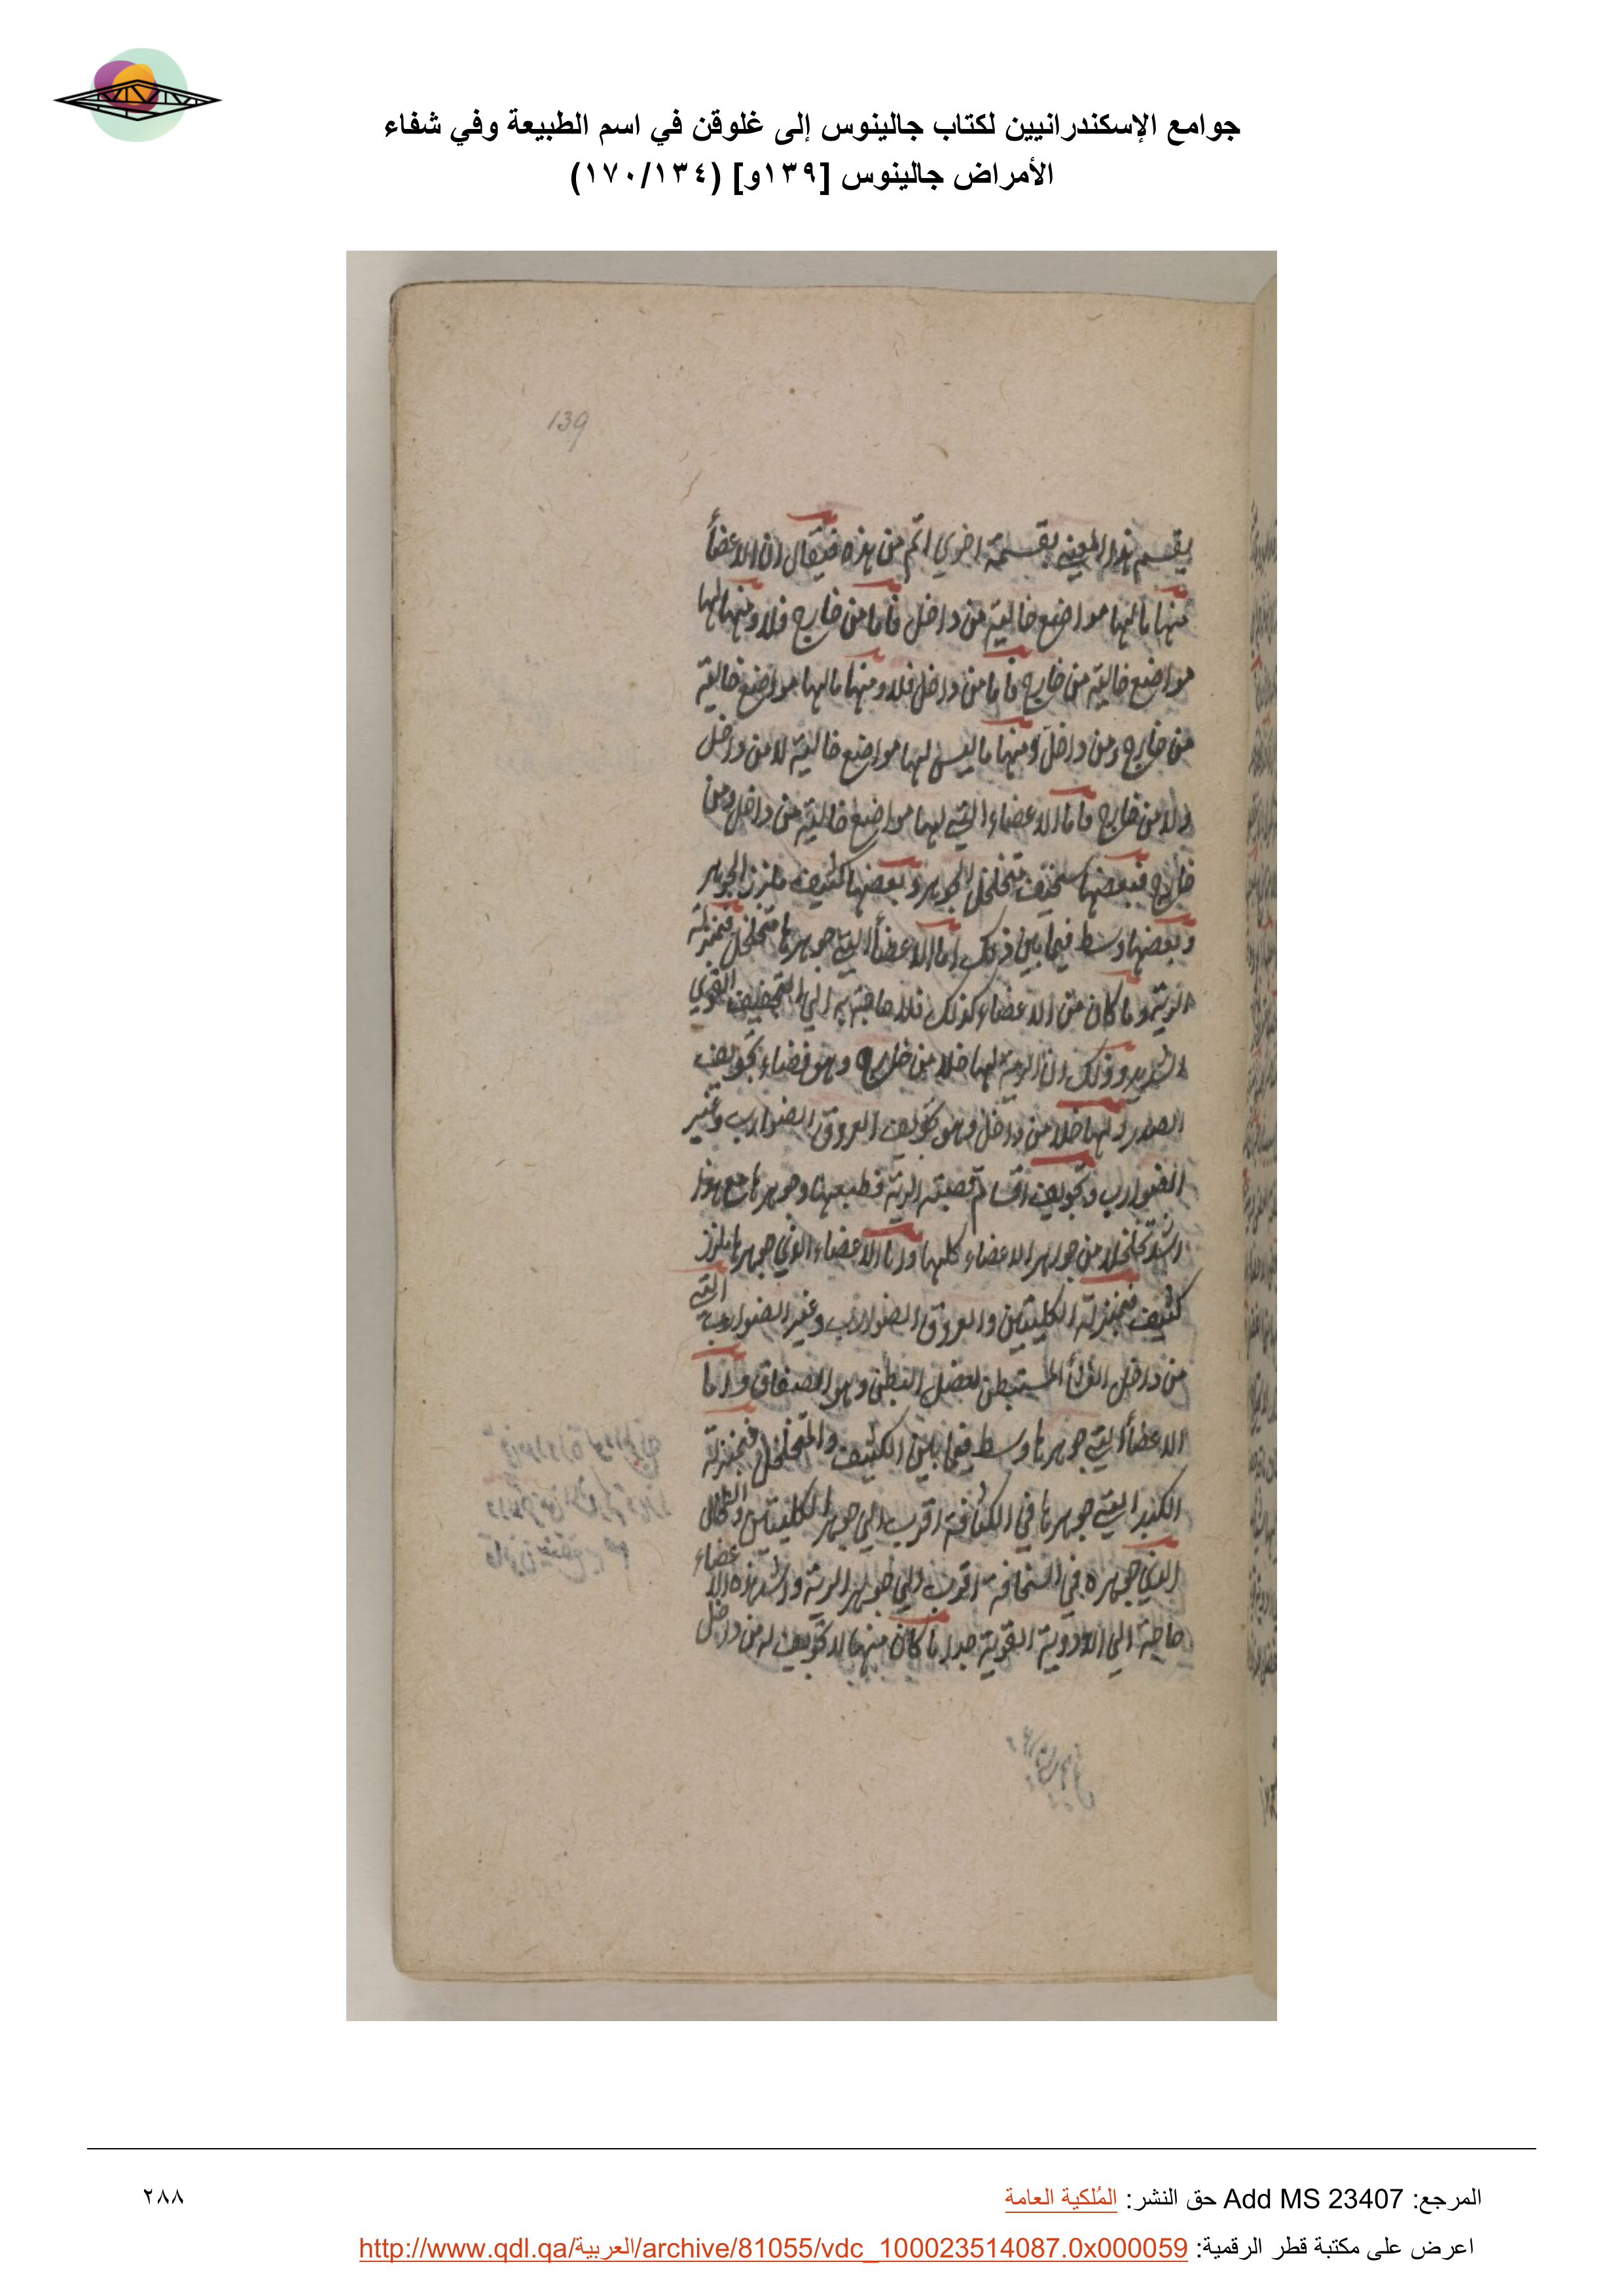 جوامع الإسكندرانيين لكتاب جالينوس إلى غلوقن في اسم الطبيعة وفي شفاء
الأمراض جالينوس [١٣٩و] (١٧٠/١٣٤)
139
يقسم هذا المعنى بقسمة اخرى اتم من هذه فيقال ان الاعضأ
منها ما لها مواضع خالية من داخل فاما من خارج فلا ومنها لها
مواضع خالية من خارج فاما من داخل فلا ومنها ما لها مواضع خالية
من خارج ومن داخل ومنها ما ليس لها مواضع خالية لا من داخل
ولا من خارج فاما الاعضاء التي لها مواضع خالية من داخل ومن
خارج فبعضها سخيف متخلخل الجوهر وبعضها كثيف ملزز الجوهر
وبعضها وسط فيما بين ذلك اما الاعضأ التي جوهرها متخلخل فبمنزلة
الرية وما كان من الاعضاء كذلك فلا حاجة به الى التجفيف القوي
الشديد وذلك ان الرية لها خلا من خارج وهو فضاء تجويف
الصدر ولها خلا من داخل وهو تجويف العروق الضوارب وغير
الضوارب وتجويف اقسام قصبة الرية فطبعها وجوهرها مع هذا
اشد تخلخلا من جواهر الاعضاء كلها واما الاعضاء الذي جوهرها ملزز
كثيف فبمنزلة الكليتين والعروق الضوارب وغير الضوارب التي
من داخل الغشأ المستبطن لعضل البطن وهو الصفاق واما
الاعضأ التي جوهرها وسط فيما بين الكثيف والمتخلخل فبمنزلة
الكبد التي جوهرها في الكثافة اقرب الى جوهر الكليتين والطحال
الذي جوهره في السخافة اقرب الى جوهر الرية واشد هذه الاعضاء
حاجة الى الادوية القوية جدا ما كان منها لا تجويف له من داخل
المرجع: Add MS 23407 حق النشر: المُلكية العامة
٢٨٨
اعرض على مكتبة قطر الرقمية: http://www.qdl.qa/العربية/archive/81055/vdc_100023514087.0x000059